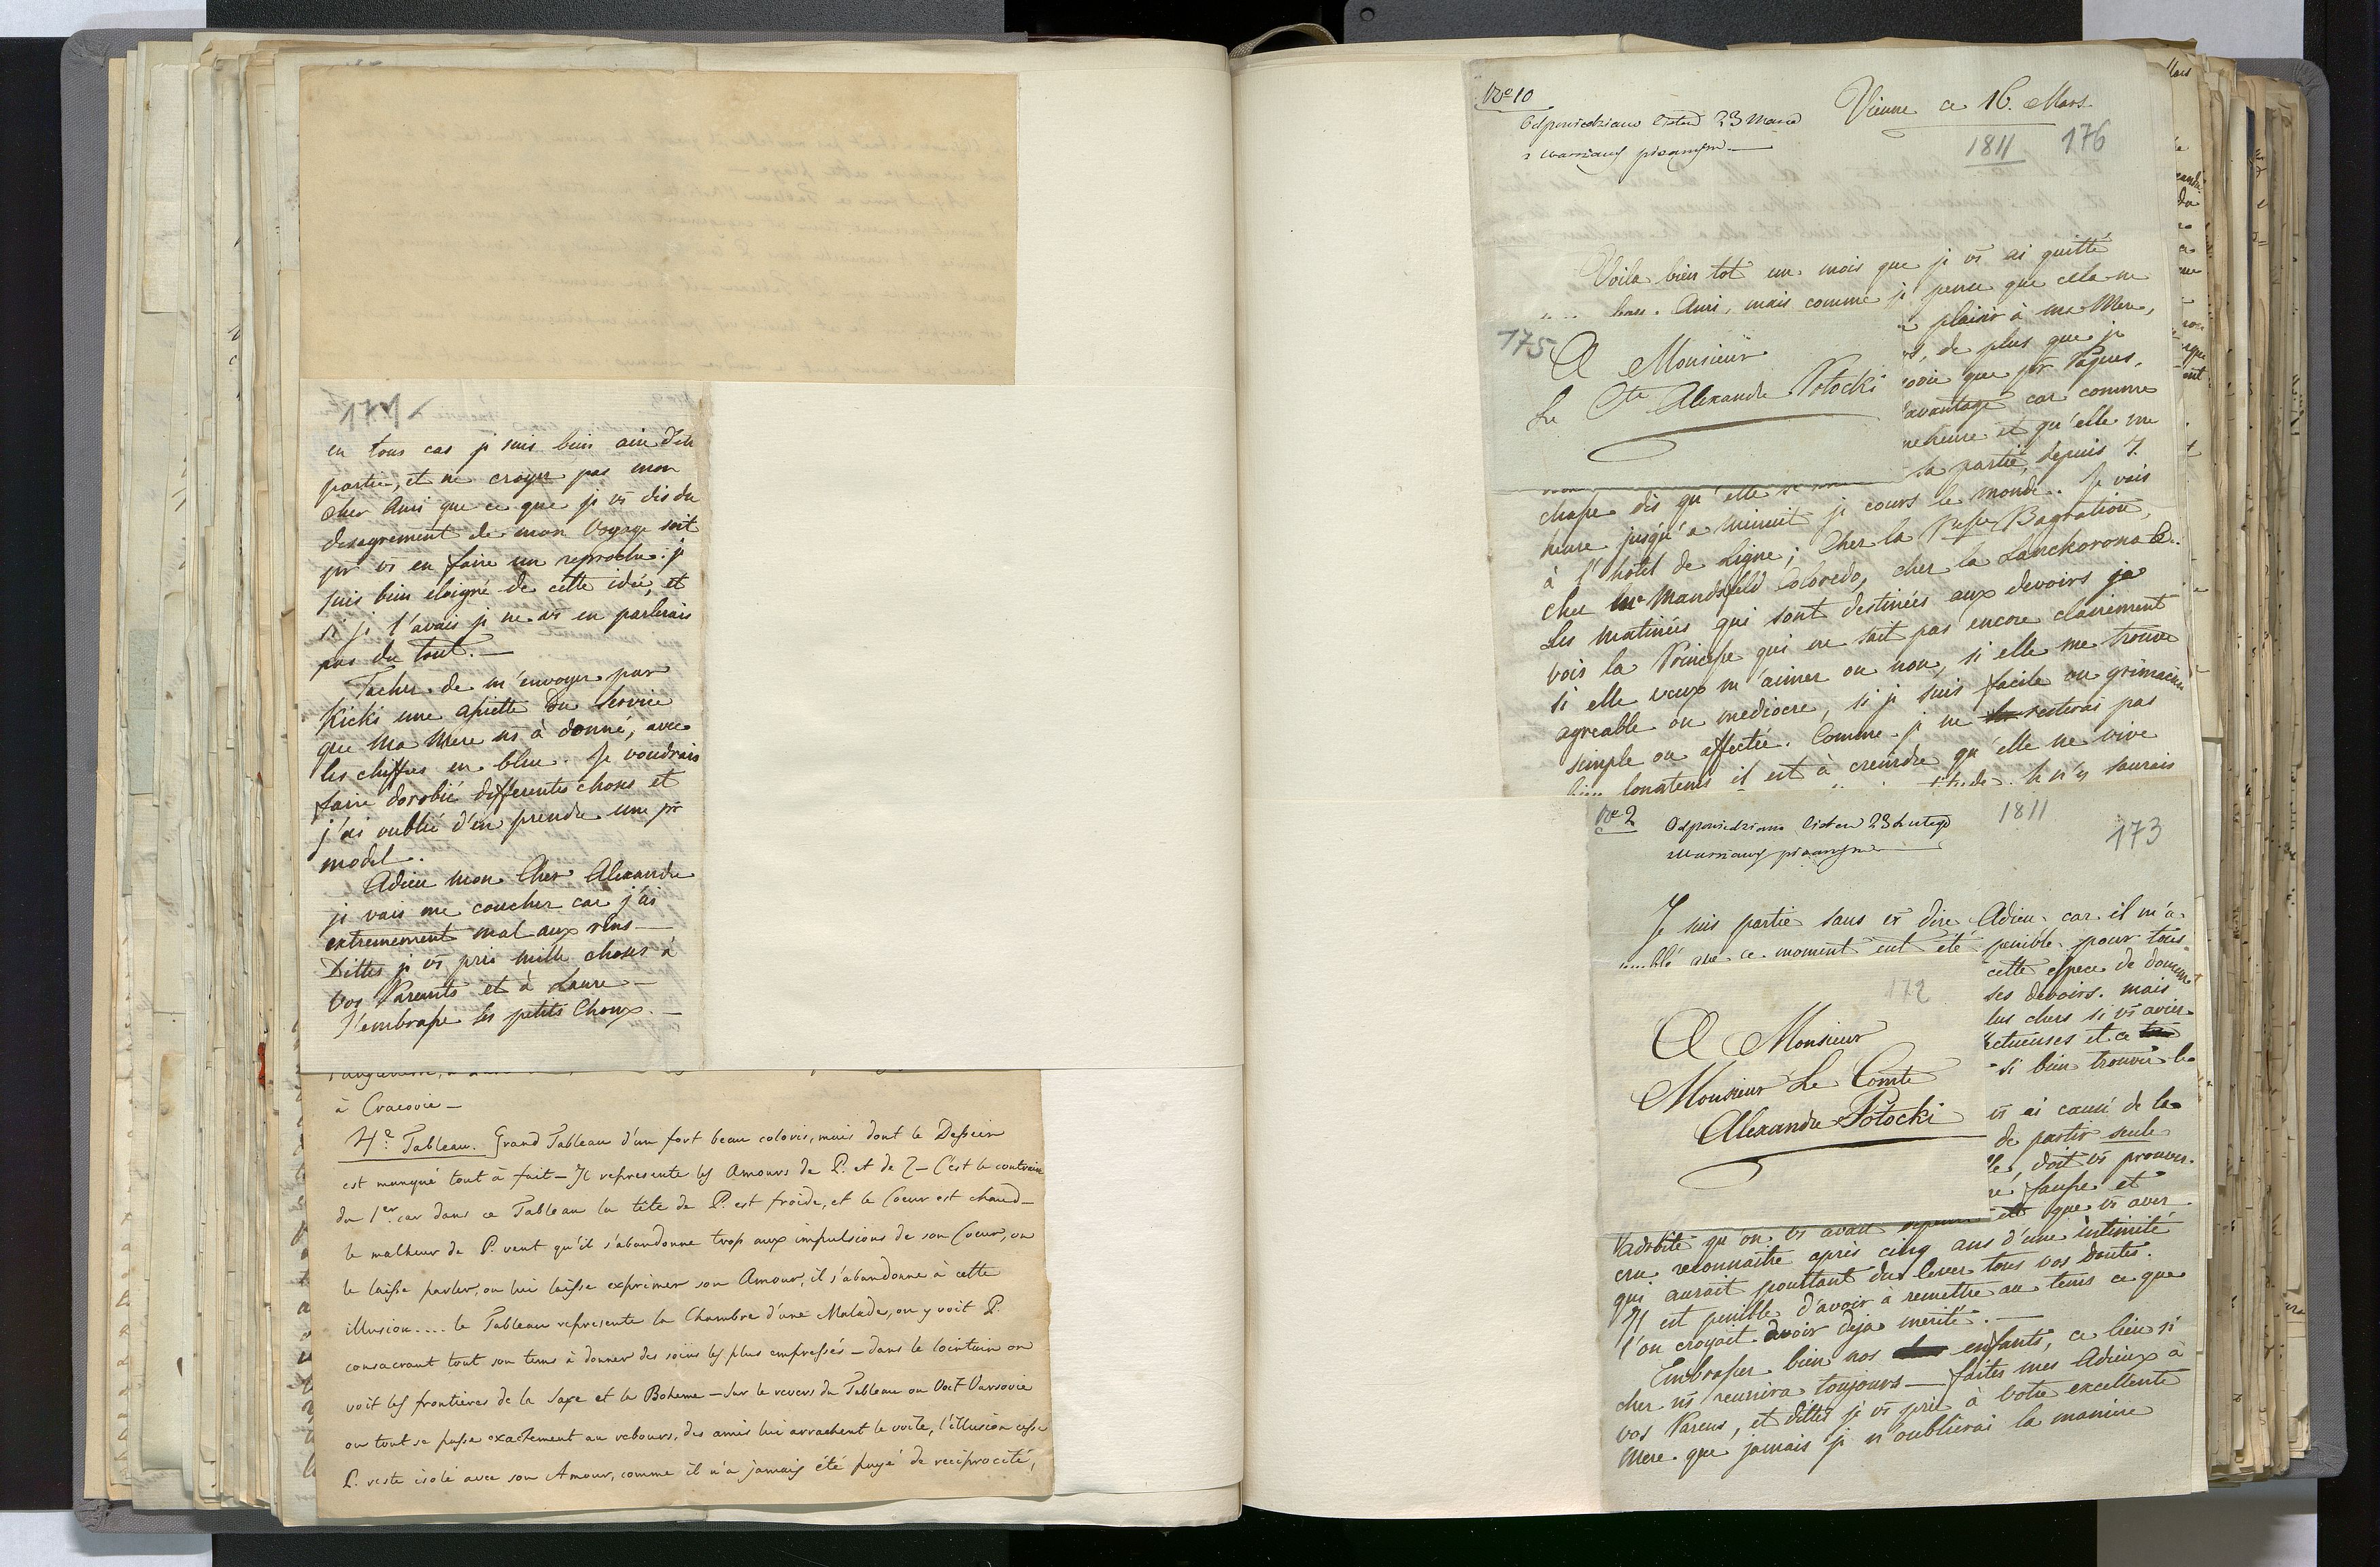 171
en tous cas je suis bien aise d'etre
partie, et ne croyez pas mon
cher Ami que ce que je vs dis du
desagrement de mon Voyage soit
pr vs en faire un reproche. je
suis bien éloigné de cette idée, et
si je l'avais je ne vs en parlerais
pas du tout. —
Tachez de m'envoyer par
Kicki une assiette du Service
que Ma Mere ns à donné, avec
les chiffres en bleu. Je voudrais
faire differentes choses et
j'ai oublié d'en prendre une pr
model.
Adieu mon Cher Alexandre
je vais me coucher car j'ai
extremement mal aux reins —
Dittes je vs prie mille choses à
vos Parents et à Laure —
J'embrasse les petits Choux. —
à Cracovie —
4e Tableau. Grand Tableau d'un fort beau coloris, mais dont le Dessein
est manqué tout à fait — Il represente les Amours de P. et de Z — C'est le contraire
du 1er car dans ce Tableau la tête de P. est froide, et le Coeur est chaud —
le malheur de P. veut qu'il s'abandonne trop aux impulsions de son Coeur, on
le laisse parler, on lui laisse exprimer son Amour, il s'abandonne à cette
illusion.... le Tableau represente la Chambre d'une Malade, on y voit P.
consacrant tout son tems à donner des soins les plus empressés — dans le lointain on
voit les frontieres de la Saxe et la Boheme — Sur le revers du Tableau on Voit Varsovie
ou tout se passe exactement au rebours, des amis lui arrachent le voile, l'illusion cesse
P. reste isolé avec son Amour, comme il n'a jamais été payé de reciprocité,
No 10
Odpowiedziano listem 23 Marca
z Warszawy pisanym —
Vienne ce 16. Mars
1811 176
Voila bien tot un mois que je vs ai quitté
Ami, mais comme je pense que cela ne
plaisir à ma Mere,
de plus que je
que pr Paques.
davantage car comme
heure et qu'elle me
175
A Monsieur
Le Cte Alexandre Potocki
sa partie, depuis 7.
chasse dès qu'elle
heure jusqu'a minuit je cours le monde. Je vais
à l'hotel de Ligne; Chez la Psse Bagration,
chez Me Mansfeld Coloredo, chez la Lanckoronska.
Les Matinées qui sont destinées aux devoirs je
vois la Princesse qui ne sait pas encore clairement
si elle veux m'aimer ou non, si elle me trouve
agreable ou mediocre, si je suis facile ou grimaciere
simple ou affectée. Comme je ne resterai pas
bien longtems il est à creindre qu'elle ne vive
saurais
No 2
Odpowiedziano listem 23 Lutego
z Warszawy pisanym
1811
173
Je suis partie sans vs dire Adieu. car il m'a
semblé que ce moment eut été penible pour tous
cette espece de
ses devoirs. mais
plus chers si vs aviez
et ce
si bien trouver le
172
A Monsieur
Monsieur Le Comte
Alexandre Potocki
vs ai causé de la
de partir seule
doit vs prouver.
fausse et
que vs avez
qu'on vs avait
cru reconnaitre après cinq ans d'une intimité
qui aurait pourtant du lever tous vos doutes.
Il est penible d'avoir à remettre au tems ce que
l'on croyait avoir deja merité. —
Embrassez bien nos enfants, ce lien si
cher ns reunira toujours — faites mes Adieux à
vos Parens, et dittes je vs prie à votre excellente
Mere que jamais je n'oublierai la maniere